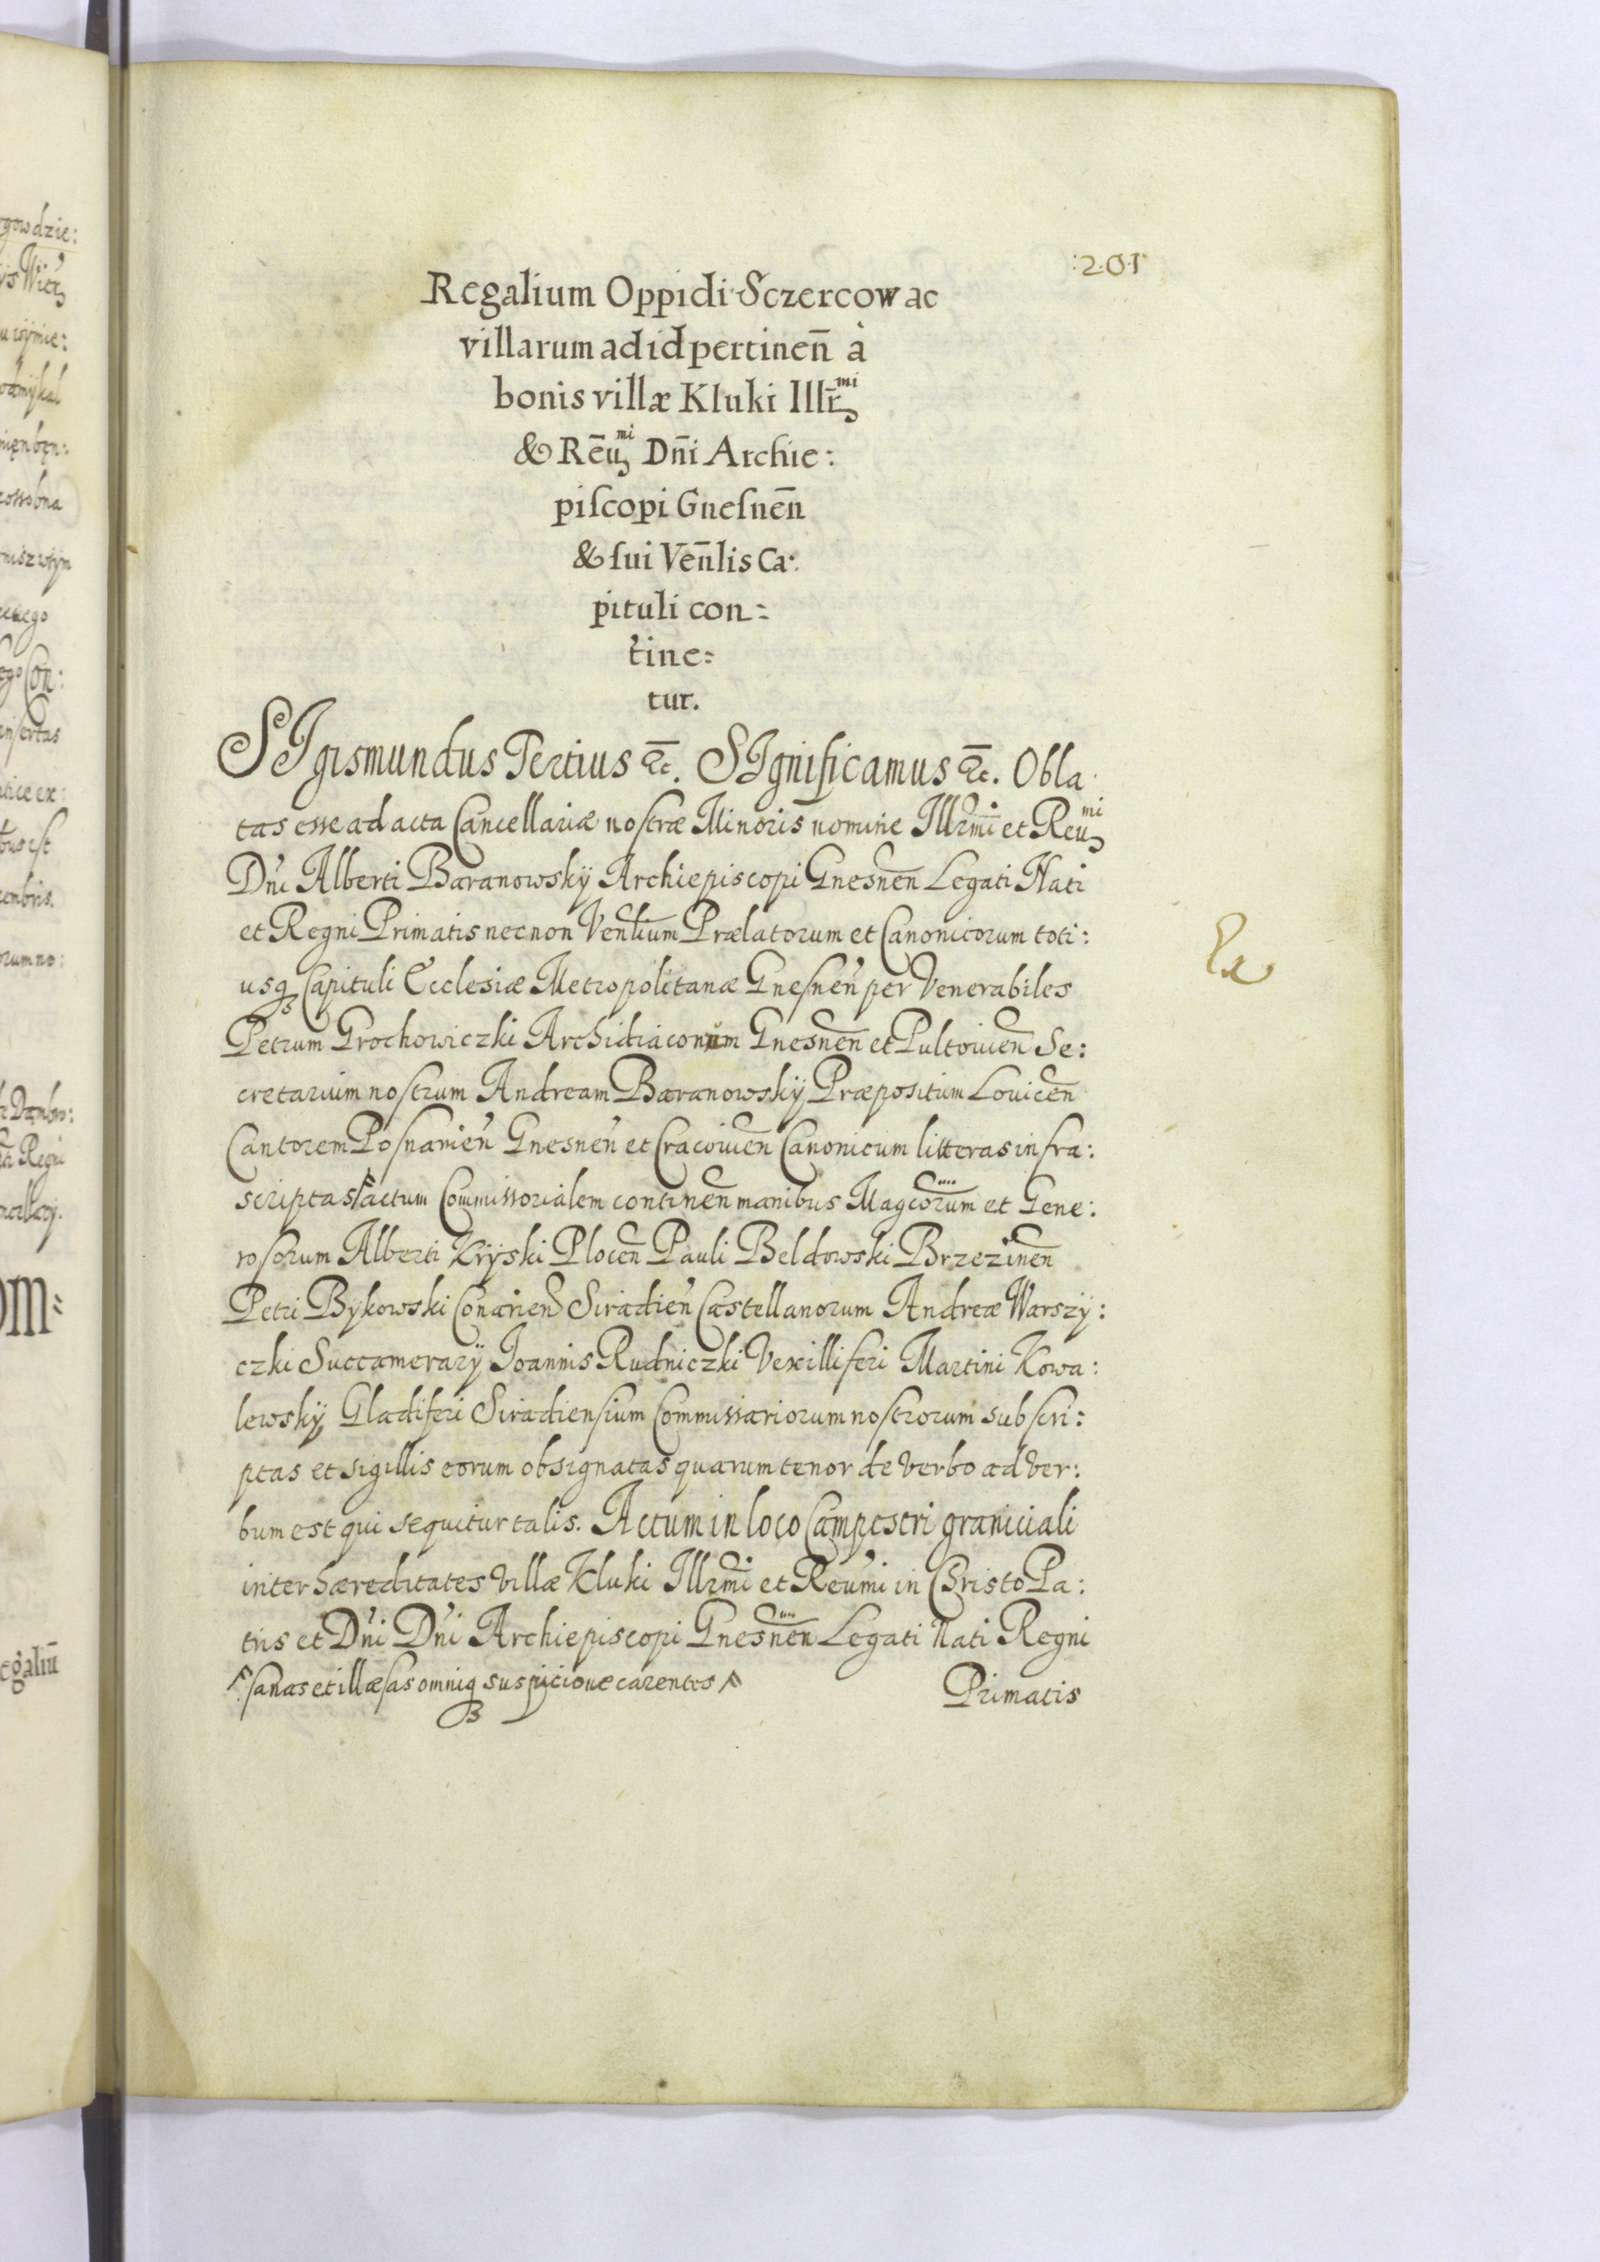 :201
Regalium Oppidi Sczercow ac
villarum ad id pertinen̄ à
bonis villæ Kluki Illr̄mi
& Rēumi Dn̄i Archie:
piſcopi Gneſnen̄
& ſui Ven̄lis Ca:
pituli con:
tine:
tur.
SIgismundus Tertius &c. SIgnificamus &c. Obla
tas esse ad acta Cancellariæ nostræ Minoris nomine Illrmi et Reumi
Dn̄i Alberti Baranowskÿ Archiepiscopi Gnesnen̄ Legati Nati
et Regni Primatis necnon Venlium Prælatorum et Canonicorum toti:
usq3 Capituli Ecclesiæ Metropolitanæ Gnesnen̄ per Venerabiles
Petrum Grochowiczki Archidiaconum Gnesnen̄ et Pultovien̄ Se:
cretarium nostrum Andream Baranowskÿ Præpositum Lovicen̄
Cantorem Posnanien̄ Gnesnen̄ et Cracovien̄ Canonicum litteras infra:
scriptas actum Commissorialem continen̄ manibus Magcorum et Gene:
rosorum Alberti Krÿski Plocen̄ Pauli Beldowski Brzezinen̄
Petri Bÿkowski Conarien̄ Siradien̄ Castellanorum Andreæ Warszÿ:
czki Succamerarÿ Joannis Rudniczki Vexilliferi Martini Kowa:
lewskÿ Gladiferi Siradiensium Commissariorum nostrorum subscri:
ptas et sigillis eorum obsignatas quarum tenor de verbo ad ver:
bum est qui sequitur talis. Actum in loco Campestri graniciali
inter hæreditates villæ Kluki Illrmi et Reumi in Christo Pa:
tris et Dn̄i Dn̄i Archiepiscopi Gnesnen̄ Legati Nati Regni
sanas et illæsas omniq3 suspicione carentes
Primatis